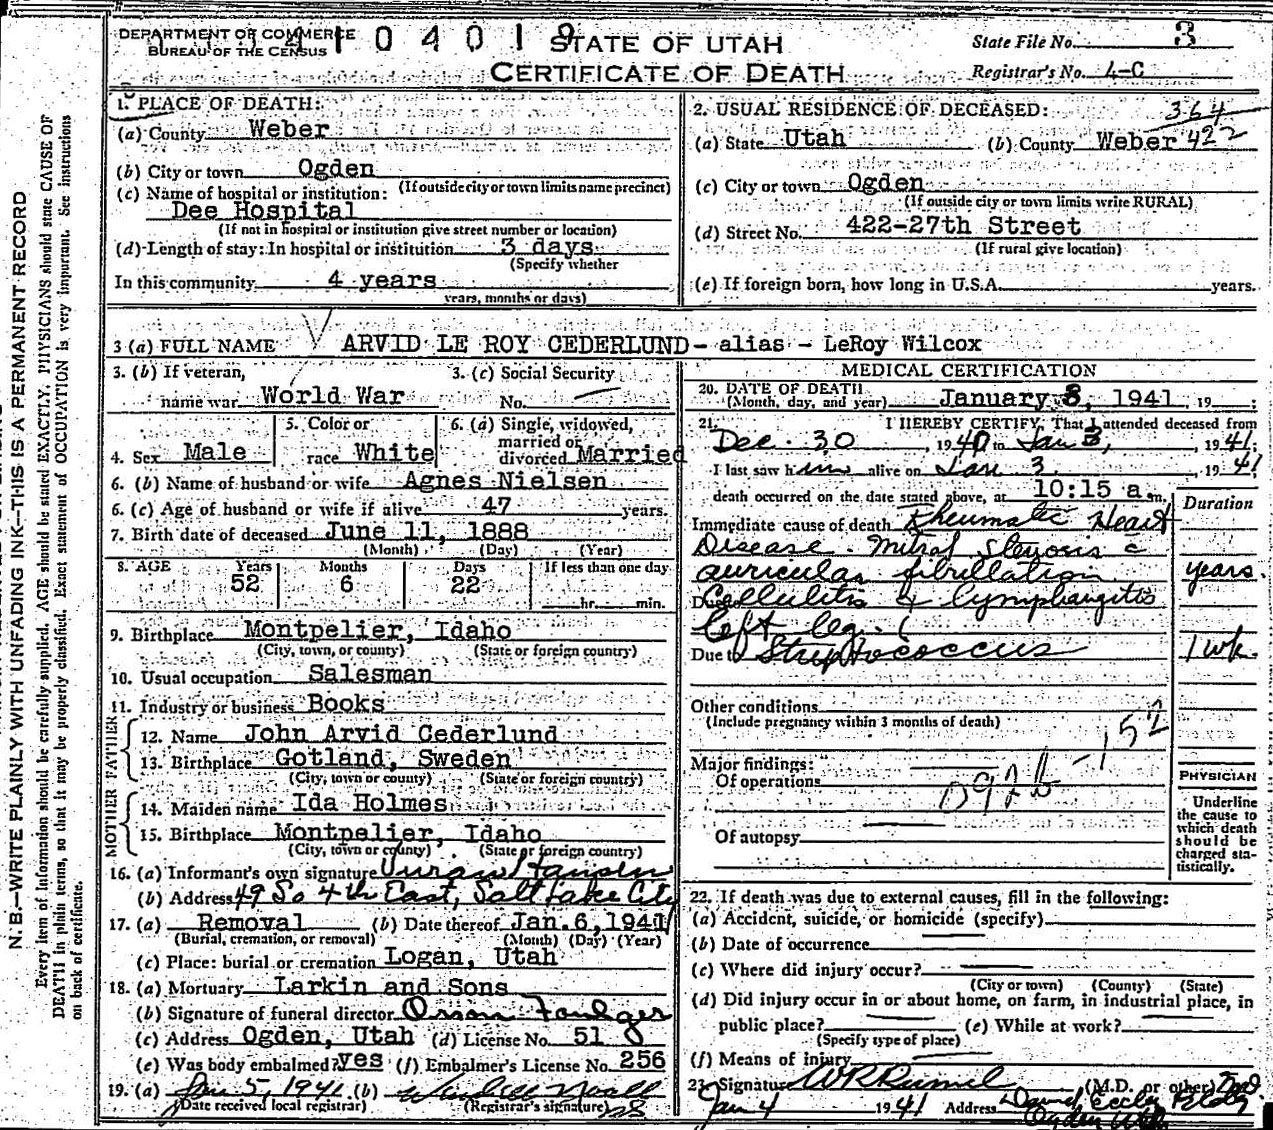 DEPARTMENT OF COMMERCE
BUREAU OF THE CENSUS
1 0 4 0 1 9
STATE OF UTAH
CERTIFICATE OF DEATH
State File No. 3
Registrar's No. 4-C
N. B.—WRITE PLAINLY WITH UNFADING INK—THIS IS A PERMANENT RECORD
Every item of information should be carefully supplied. AGE should be stated EXACTLY. PHYSICIANS should state CAUSE OF
DEATH in plain terms, so that it may be properly classified. Exact statement of OCCUPATION is very important. See instructions
on back of certificate.
1. PLACE OF DEATH:
(a) County Weber
(b) City or town Ogden
(If outside city or town limits name precinct)
(c) Name of hospital or institution:
Dee Hospital
(If not in hospital or institution give street number or location)
(d) Length of stay: In hospital or institution 3 days
(Specify whether
In this community 4 years
years, months or days)
2. USUAL RESIDENCE OF DECEASED: 364
(a) State Utah (b) County Weber 422
(c) City or town Ogden
(If outside city or town limits write RURAL)
(d) Street No. 422-27th Street
(If rural give location)
(e) If foreign born, how long in U.S.A. years.
3 (a) FULL NAME ARVID LE ROY CEDERLUND- alias - LeRoy Wilcox
3. (b) If veteran,
name war World War
3. (c) Social Security
No. —
4. Sex Male
5. Color or
race White
6. (a) Single, widowed,
married or
divorced Married
6. (b) Name of husband or wife Agnes Nielsen
6. (c) Age of husband or wife if alive 47 years.
7. Birth date of deceased June 11, 1888
(Month) (Day) (Year)
8. AGE Years Months Days If less than one day
52 6 22
hr. min.
9. Birthplace Montpelier, Idaho
(City, town, or county) (State or foreign country)
10. Usual occupation Salesman
11. Industry or business Books
FATHER
12. Name John Arvid Cederlund
13. Birthplace Gotland, Sweden
(City, town or county) (State or foreign country)
MOTHER
14. Maiden name Ida Holmes
15. Birthplace Montpelier, Idaho
(City, town or county) (State or foreign country)
16. (a) Informant's own signature
(b) Address 49 So 4th East, Salt Lake City
17. (a) Removal (b) Date thereof Jan. 6, 1941
(Burial, cremation, or removal) (Month) (Day) (Year)
(c) Place: burial or cremation Logan, Utah
18. (a) Mortuary Larkin and Sons
(b) Signature of funeral director Orson Foulger
(c) Address Ogden, Utah (d) License No. 51
(e) Was body embalmed? yes (f) Embalmer's License No. 256
19. (a) Jan 5, 1941 (b)
(Date received local registrar) (Registrar's signature)
MEDICAL CERTIFICATION
20. DATE OF DEATH
(Month, day, and year) January 3, 1941, 19 ;
21. I HEREBY CERTIFY, That I attended deceased from
Dec. 30, 1940 to Jan 3, 1941.
I last saw him alive on Jan 3, 1941
death occurred on the date stated above, at 10:15 a m.
Duration
Immediate cause of death Rheumatic Heart
Disease. Mitral stenosis c
auricular fibrillation years.
Due to Cellulitis & lymphangitis
left leg.
Due to Streptococcus 1 wk.
Other conditions
(Include pregnancy within 3 months of death)
Major findings:
Of operations
D92b - 152
Of autopsy
PHYSICIAN
Underline
the cause to
which death
should be
charged sta-
tistically.
22. If death was due to external causes, fill in the following:
(a) Accident, suicide, or homicide (specify)
(b) Date of occurrence
(c) Where did injury occur?
(City or town) (County) (State)
(d) Did injury occur in or about home, on farm, in industrial place, in
public place? (e) While at work?
(Specify type of place)
(f) Means of injury
23. Signature W R Rumel (M.D. or other) M.D.
Jan 4 1941 Address David Eccles Bldg
Ogden Utah